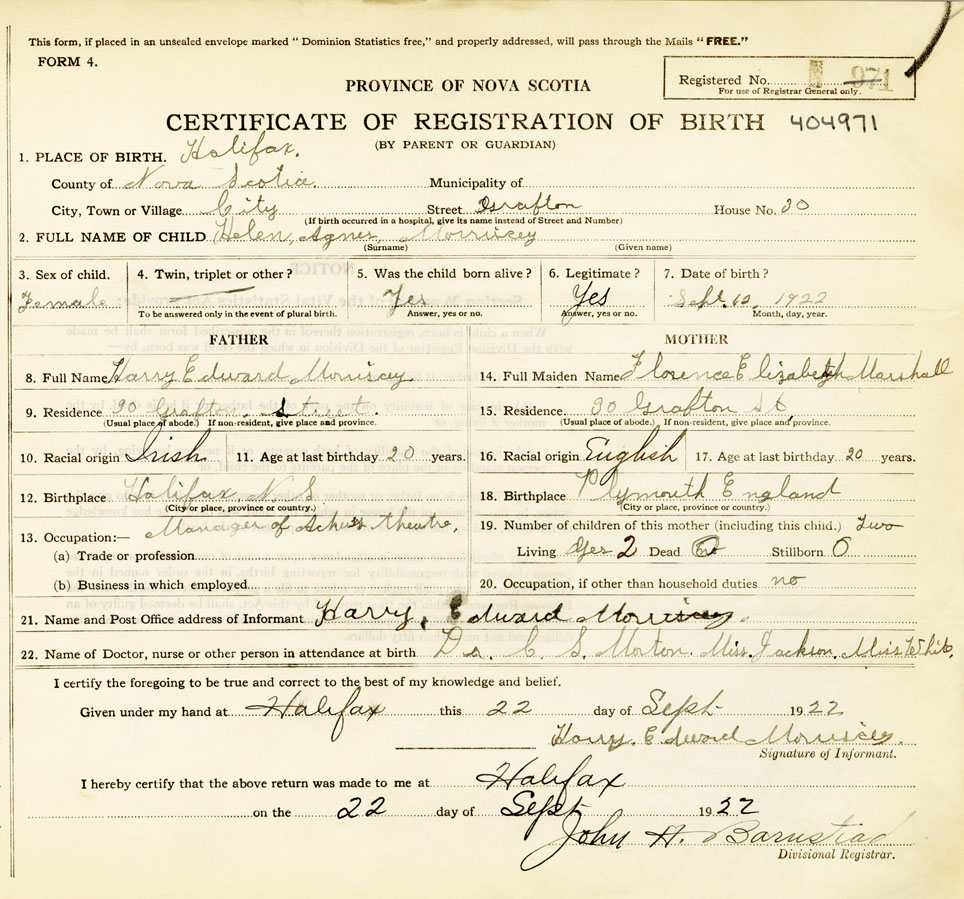 This form, if placed in an unsealed envelope marked "Dominion Statistics free," and properly addressed, will pass through the Mails "FREE."
FORM 4.
PROVINCE OF NOVA SCOTIA
Registered No. 971
For use of Registrar General only.
CERTIFICATE OF REGISTRATION OF BIRTH 404971
(BY PARENT OR GUARDIAN)
1. PLACE OF BIRTH. Halifax.
County of Nova Scotia. Municipality of
City, Town or Village City Street Grafton House No. 90
(If birth occurred in a hospital, give its name instead of Street and Number)
2. FULL NAME OF CHILD Helen Agnes Morriscey
(Surname) (Given name)
3. Sex of child. 4. Twin, triplet or other? 5. Was the child born alive? 6. Legitimate? 7. Date of birth?
Female Yes Yes Sept. 1922
To be answered only in the event of plural birth. Answer, yes or no. Answer, yes or no. Month, day, year.
FATHER MOTHER
8. Full Name Harry Edward Morriscey 14. Full Maiden Name Florence Elizabeth Marshall
9. Residence 90 Grafton Street. 15. Residence 90 Grafton St,
(Usual place of abode.) If non-resident, give place and province. (Usual place of abode.) If non-resident, give place and province.
10. Racial origin Irish 11. Age at last birthday 20 years. 16. Racial origin English 17. Age at last birthday 20 years.
12. Birthplace Halifax, N.S. 18. Birthplace Plymouth England
(City or place, province or country.) (City or place, province or country.)
13. Occupation:— Manager of theatre. 19. Number of children of this mother (including this child.) Two
(a) Trade or profession Living Yes 2 Dead Stillborn 0
(b) Business in which employed 20. Occupation, if other than household duties no
21. Name and Post Office address of Informant Harry, Edward Morriscey.
22. Name of Doctor, nurse or other person in attendance at birth Dr. C. S. Morton. Miss. Jackson. Miss White,
I certify the foregoing to be true and correct to the best of my knowledge and belief.
Given under my hand at Halifax this 22 day of Sept 1922
Harry. Edward Morriscey.
Signature of Informant.
I hereby certify that the above return was made to me at Halifax
on the 22 day of Sept 1922
John A. Barnstead
Divisional Registrar.